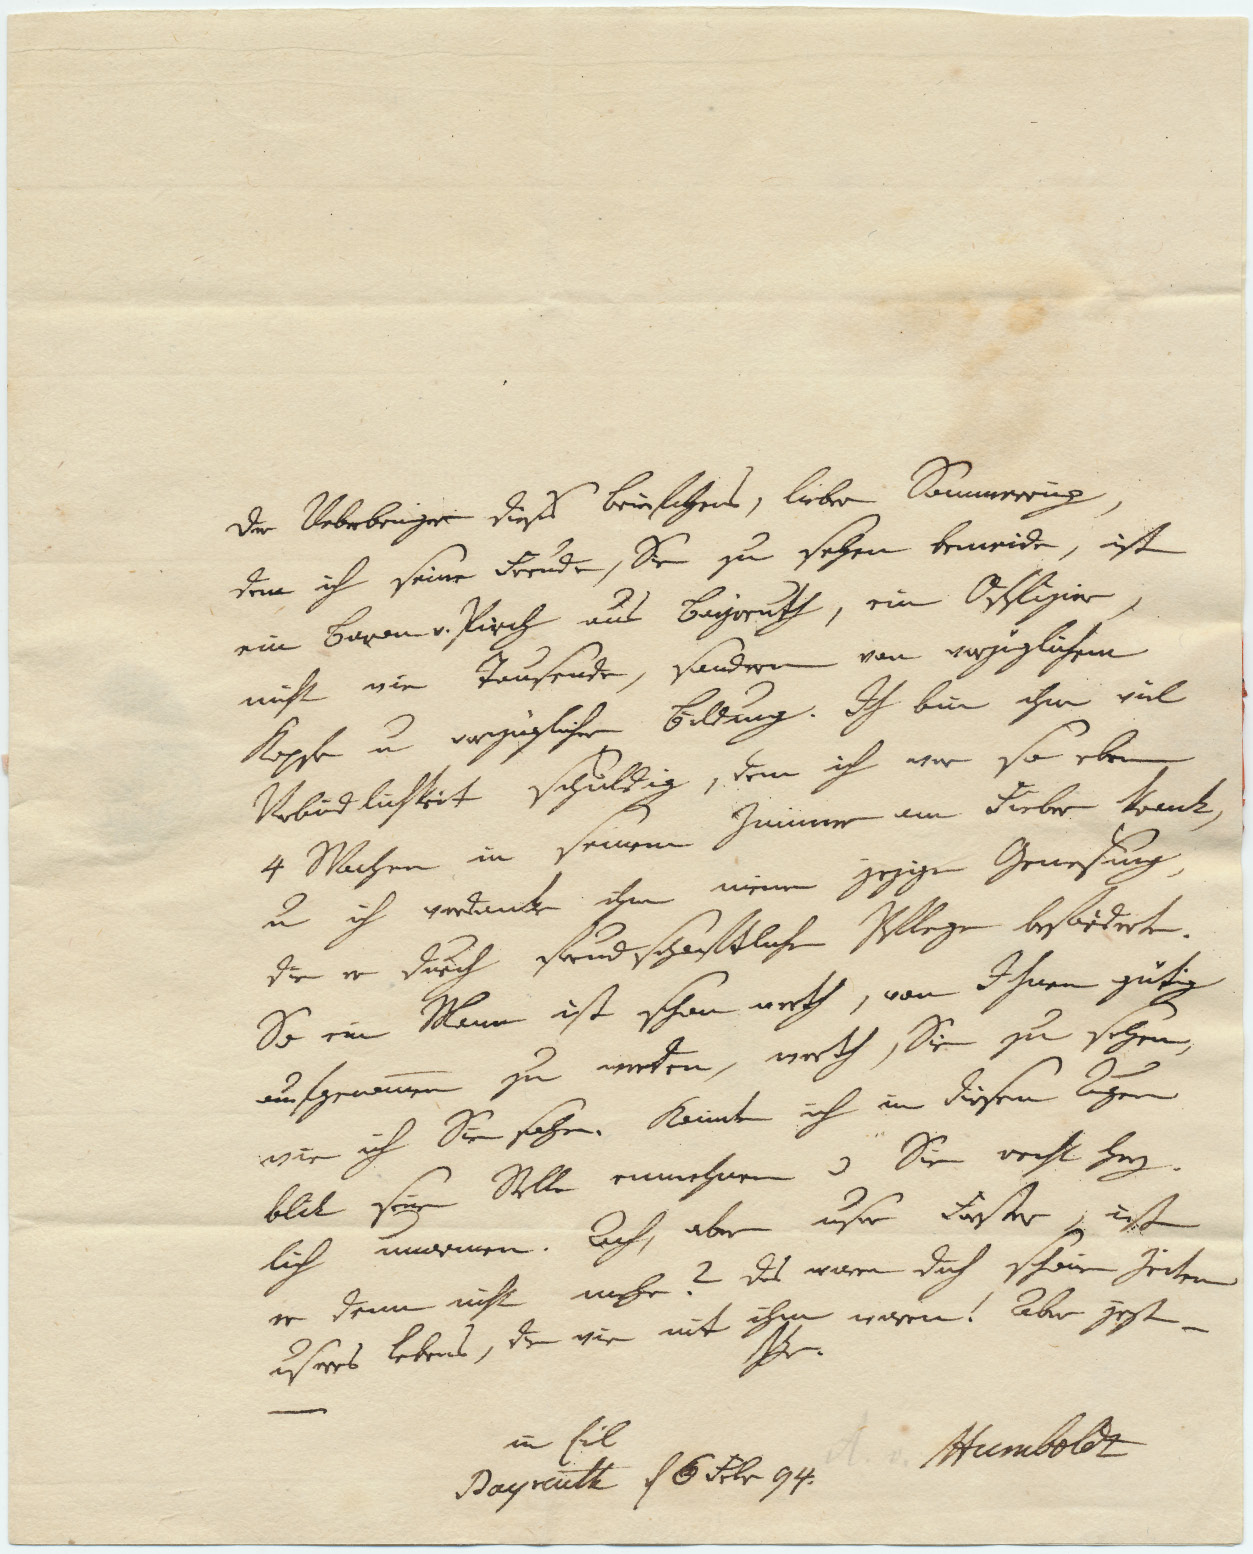 Der Ueberbringer dieses Briefchens, lieber Sömmerring,
dem ich seine Freude, Sie zu sehen beneide, ist
ein Baron v. Pirch aus Bayreuth, ein Offizier,
nicht wie Tausende, sondern von vorzüglichem
Kopfe u vorzüglicher Bildung. Ich bin ihm viel
Verbindlichkeit schuldig, denn ich war so eben
4 Wochen in seinem Zimmer am Fieber krank,
u ich verdanke ihm meine jezige Genesung,
die er durch freundschaftliche Pflege beförderte.
So ein Mann ist schon werth, von Ihnen gütig
aufgenom̄en zu werden, werth, Sie zu sehen,
wie ich Sie sehe. Könnte ich in diesem Augen
blik seine Stelle einnehmen u Sie recht herz-
lich umarmen. Ach, aber unser Forster, ist
er denn nicht mehr? das waren doch schöne Zeiten
unseres Lebens, da wir mit ihm waren! Aber jezt –
Ihr.
in Eil
Humboldt
Bayreuth d 6 Febr 94.